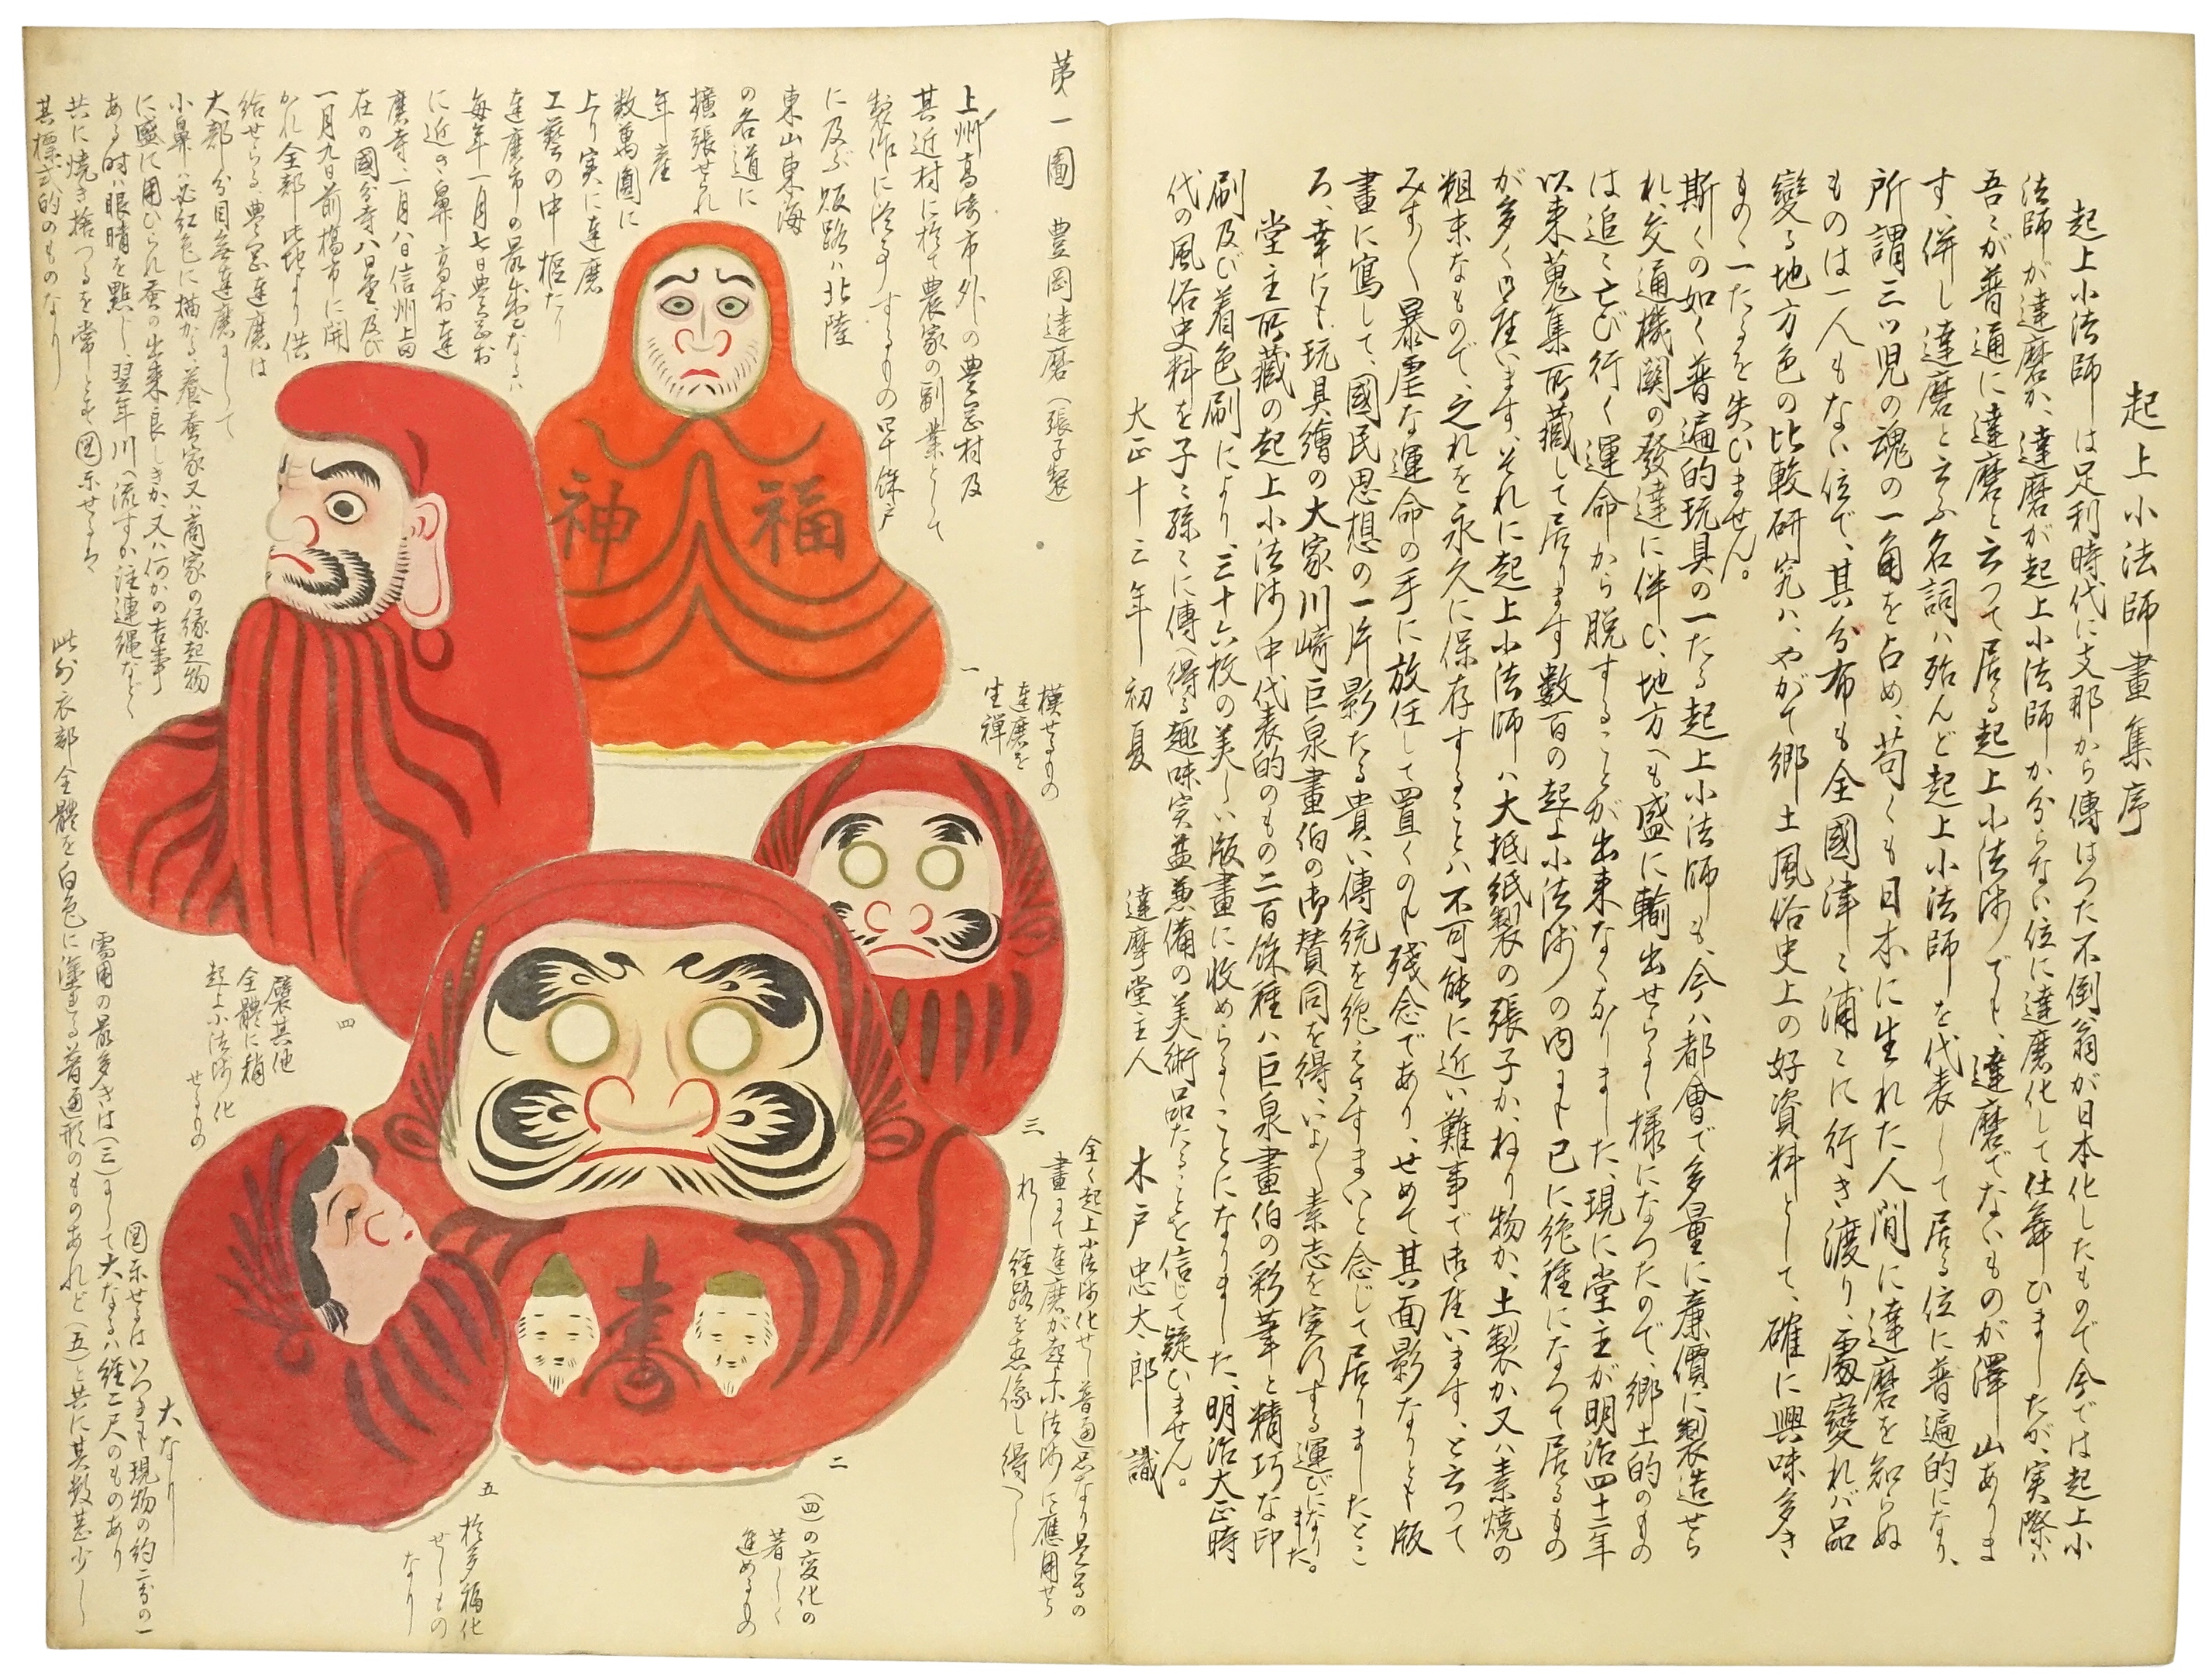 起上小法師畫集序
起上小法師は足利時代に支那から傳はつた不倒翁が日本化したもので今では起上小
法師が達磨か、達磨が起上小法師か分らない位に達磨化して仕舞ひましたが、実際ハ
吾々が普通に達磨と云つて居る起上小法師でも、達磨でないものが澤山ありま
す、併し達磨と云ふ名詞ハ殆んど起上小法師を代表して居る位に普遍的になり、
所謂三ツ児の魂の一角を占め、苟くも日本に生れた人間に達磨を知らぬ
ものは一人もない位で、其分布も全國津々浦々に行き渡り、處変れバ品
變る地方色の比較研究ハ、やがて郷土風俗史上の好資料として、確に興味多き
もの一たるを失ひません。
斯くの如く普遍的玩具の一たる起上小法師も、今ハ都會で多量に廉價に製造せら
れ、交通機関の發達に伴ひ、地方へも盛に輸出せらるゝ様になつたので、郷土的のもの
は追々亡び行く運命から脱することが出来なくなりました、現に堂主が明治四十二年
以来蒐集所藏して居ります数百の起上小法師の内にも已に絶種になつて居るもの
が多く御座います、それに起上小法師ハ大抵紙製の張子か、ねり物か、土製か又ハ素焼の
粗末なもので、之れを永久に保存することハ不可能に近い難事で御座います、と云つて
みすみす暴虐な運命の手に放任して置くのも残念であり、せめて其面影なりとも版
畫に寫して、國民思想の一片影たる貴い傳統を絶えさすまいと念じて居りましたとこ
ろ、幸にも玩具繪の大家川崎巨泉畫伯の御賛同を得、いよいよ素志を実行する運びになりました。
堂主所藏の起上小法師中代表的のもの二百餘種ハ巨泉畫伯の彩筆と精巧な印
刷及び着色刷により、三十六枚の美しい版畫に收めらるゝことになりました、明治大正時
代の風俗史料を子々孫々に傳へ得る趣味実益兼備の美術品たることを信じて疑ひません。
大正十三年初夏 達摩堂主人 木戸忠太郎識
第一圖 豊岡達磨(張子製)
上州高崎市外の豊岡村及
其近村に於て農家の副業として
製作に從事するもの四十餘戸
に及ぶ販路ハ北陸
東山東海
の各道に
擴張せられ
年産
数萬圓に
上り実に達磨
工藝の中樞たり
達磨市の最盛なるハ
毎年一月七日豊岡村
に近き鼻高村達
磨寺、一月八日信州上田
在の國分寺八日堂、及び
一月九日前橋市に開
かれ全部此地より供
給せらる、豊岡達磨は
大部分目無達磨にして
小鼻ハ必紅色に描かる、養蚕家又ハ商家の縁起物
に盛に用ひられ蚕の出来良しきか、又ハ何かの吉事
ある時ハ眼晴を點じ、翌年川へ流すか注連縄などゝ
共に焼き捨つるを常とす、圖示せるハ
其標式的のものなり
一
坐禅
達磨を
模せるもの
二
(四)の変化の
著しく
進めるもの
三
全く起上小法師化せし普通品なり是等の
畫にて達磨が起上小法師に應用せら
れし經路を想像し得べし
四
起上小法師化
全體に稍
せるもの
五
於多福化
せしもの
なり
此外衣部全體を白色に塗れる普通形のものあれど(五)と共に其数甚少し
需用の最多きは(三)にして大なるハ径二尺のものあり
圖示せるはいづれも現物の約二分の一
大なり
寿
福
神